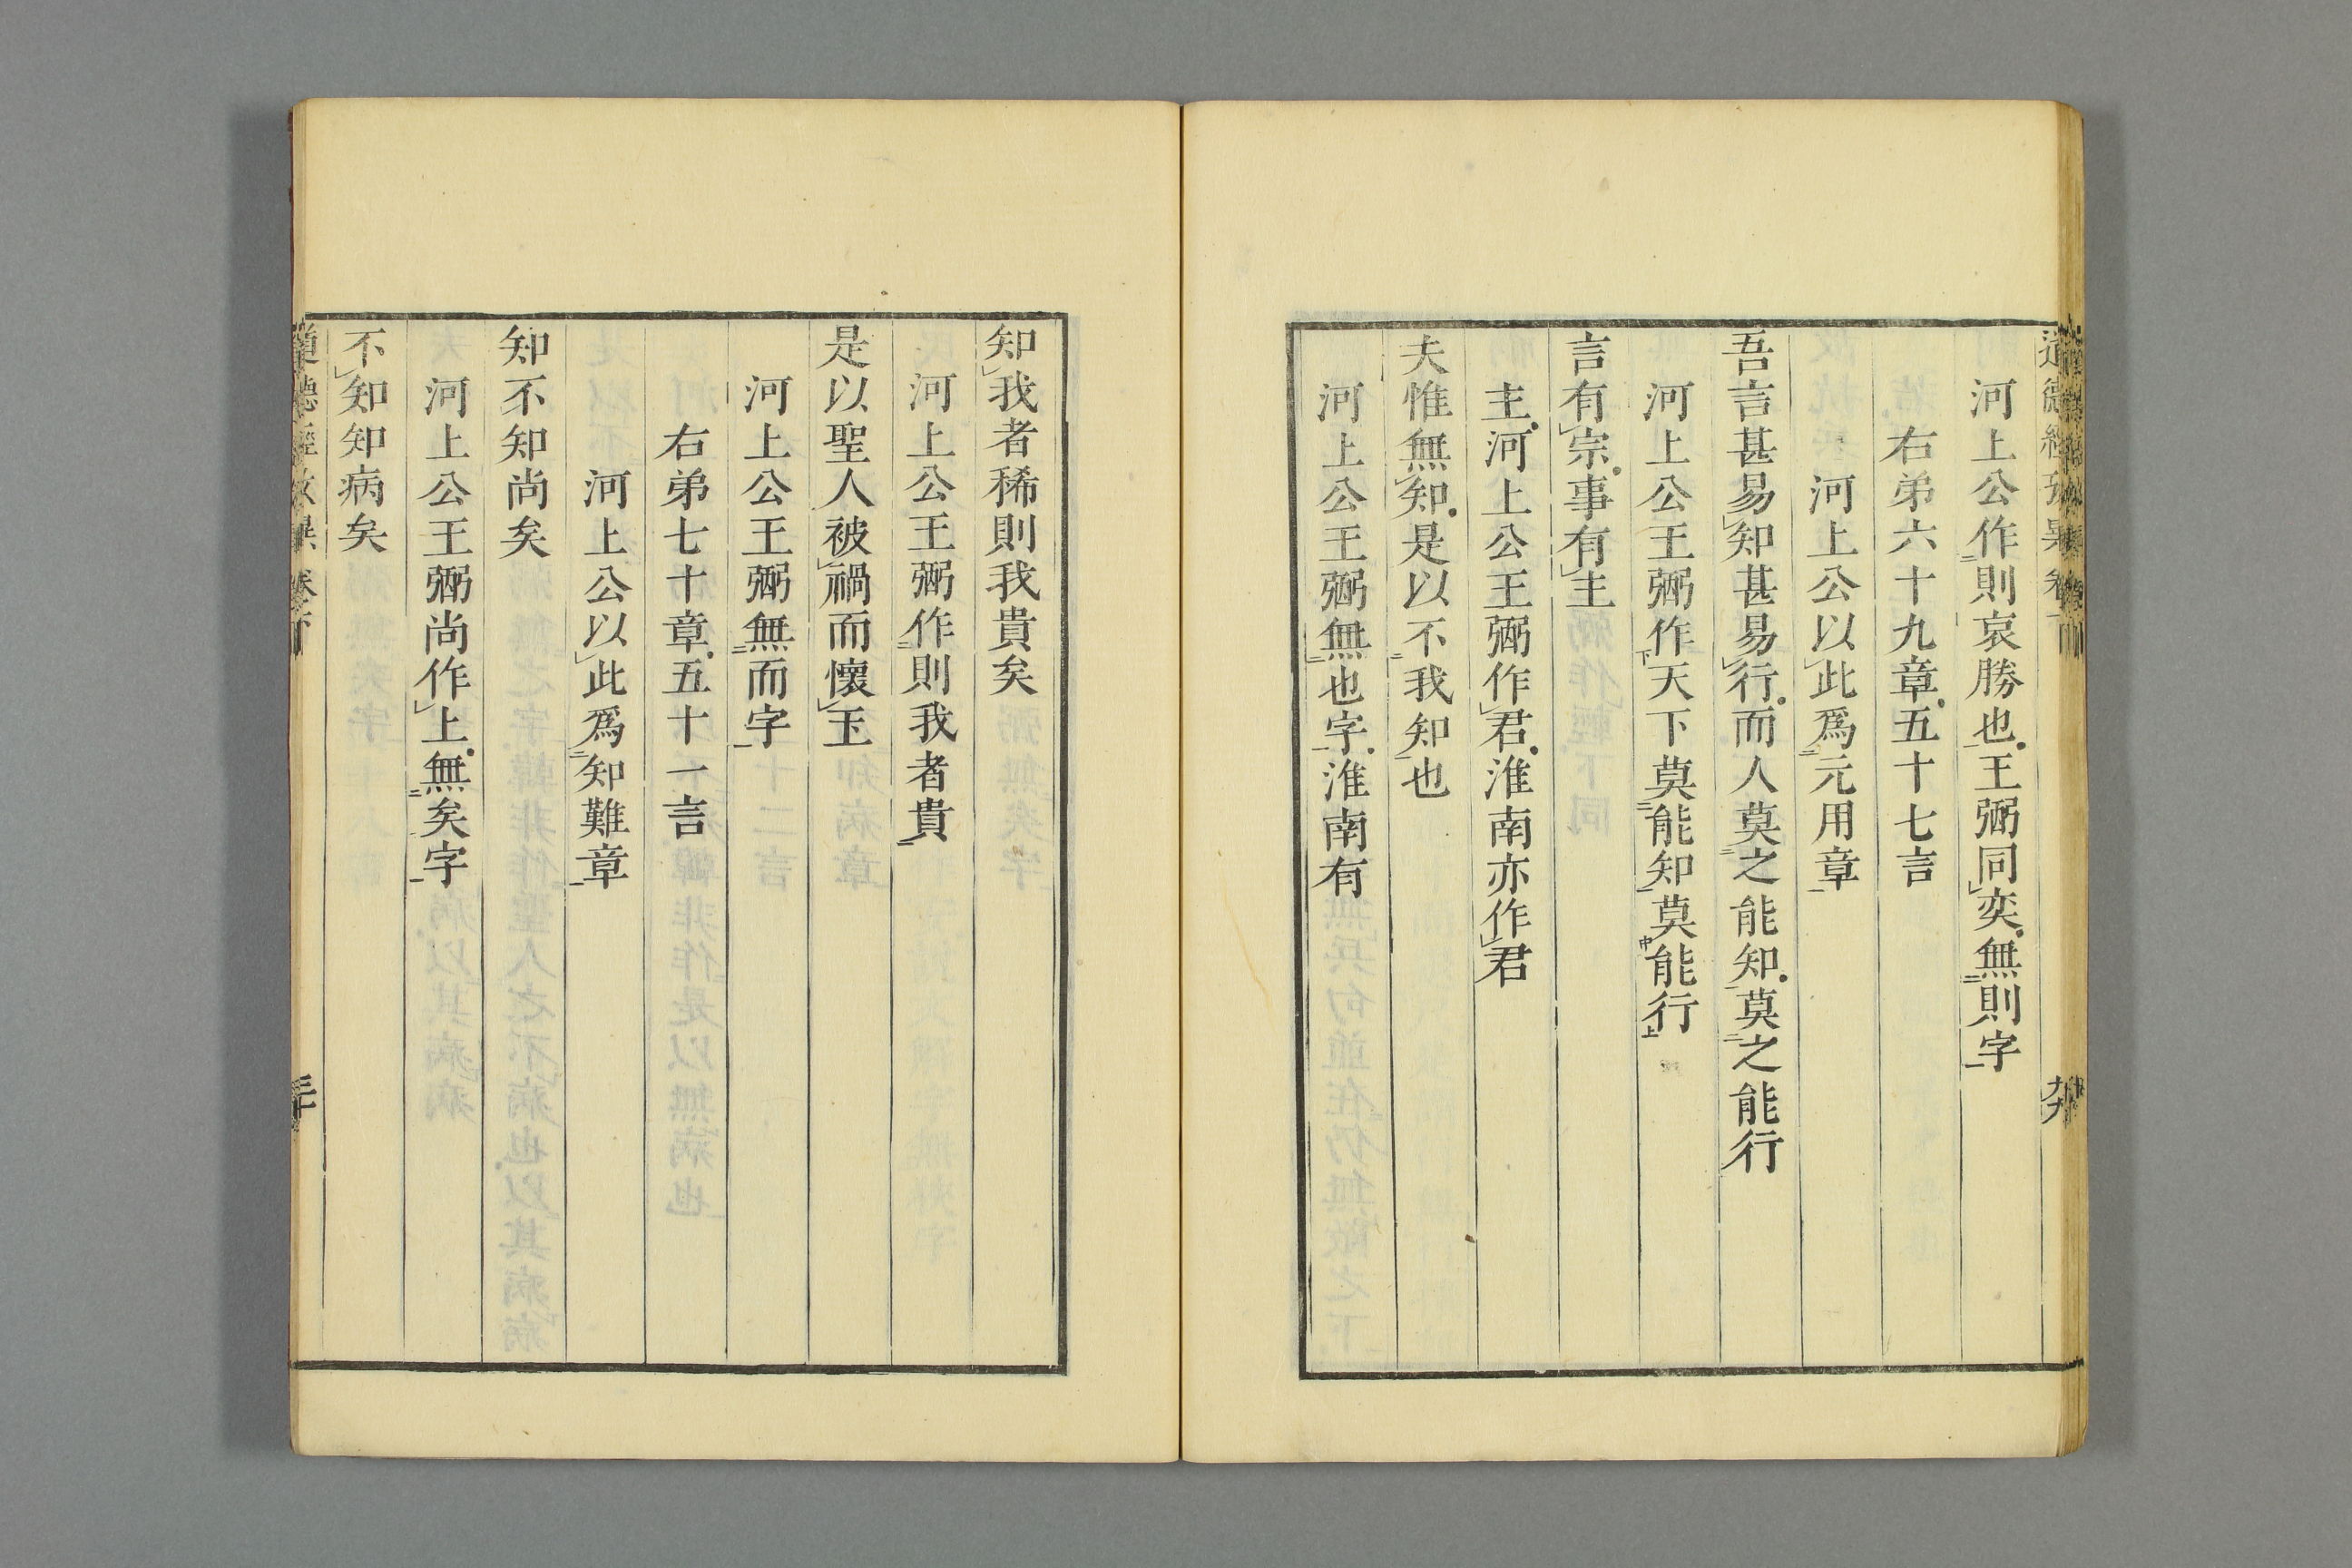 道德經攷異卷下
河上公作則哀勝也王弼同奕無則字
右弟六十九章五十七言
河上公以此爲元用章
吾言甚易知甚易行而人莫之能知莫之能行
河上公王弼作天下莫能知莫能行
言有宗事有主
主河上公王弼作君淮南亦作君
夫惟無知是以不我知也
河上公王弼無也字淮南有
知我者稀則我貴矣
河上公王弼作則我者貴
是以聖人被禍而懷玉
河上公王弼無而字
右弟七十章五十一言
河上公以此爲知難章
知不知尚矣
河上公王弼尚作上無矣字
不知知病矣
道德經攷異 卷下